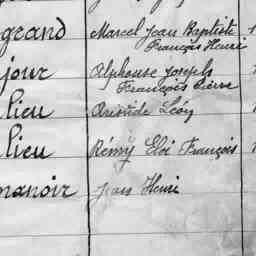 grand Marcel Jean Baptiste
François Henri
jour Alphonse Joseph
François Pierre
lieu Aristide Léon
lieu Rémy Eloi François
manoir Jean Henri